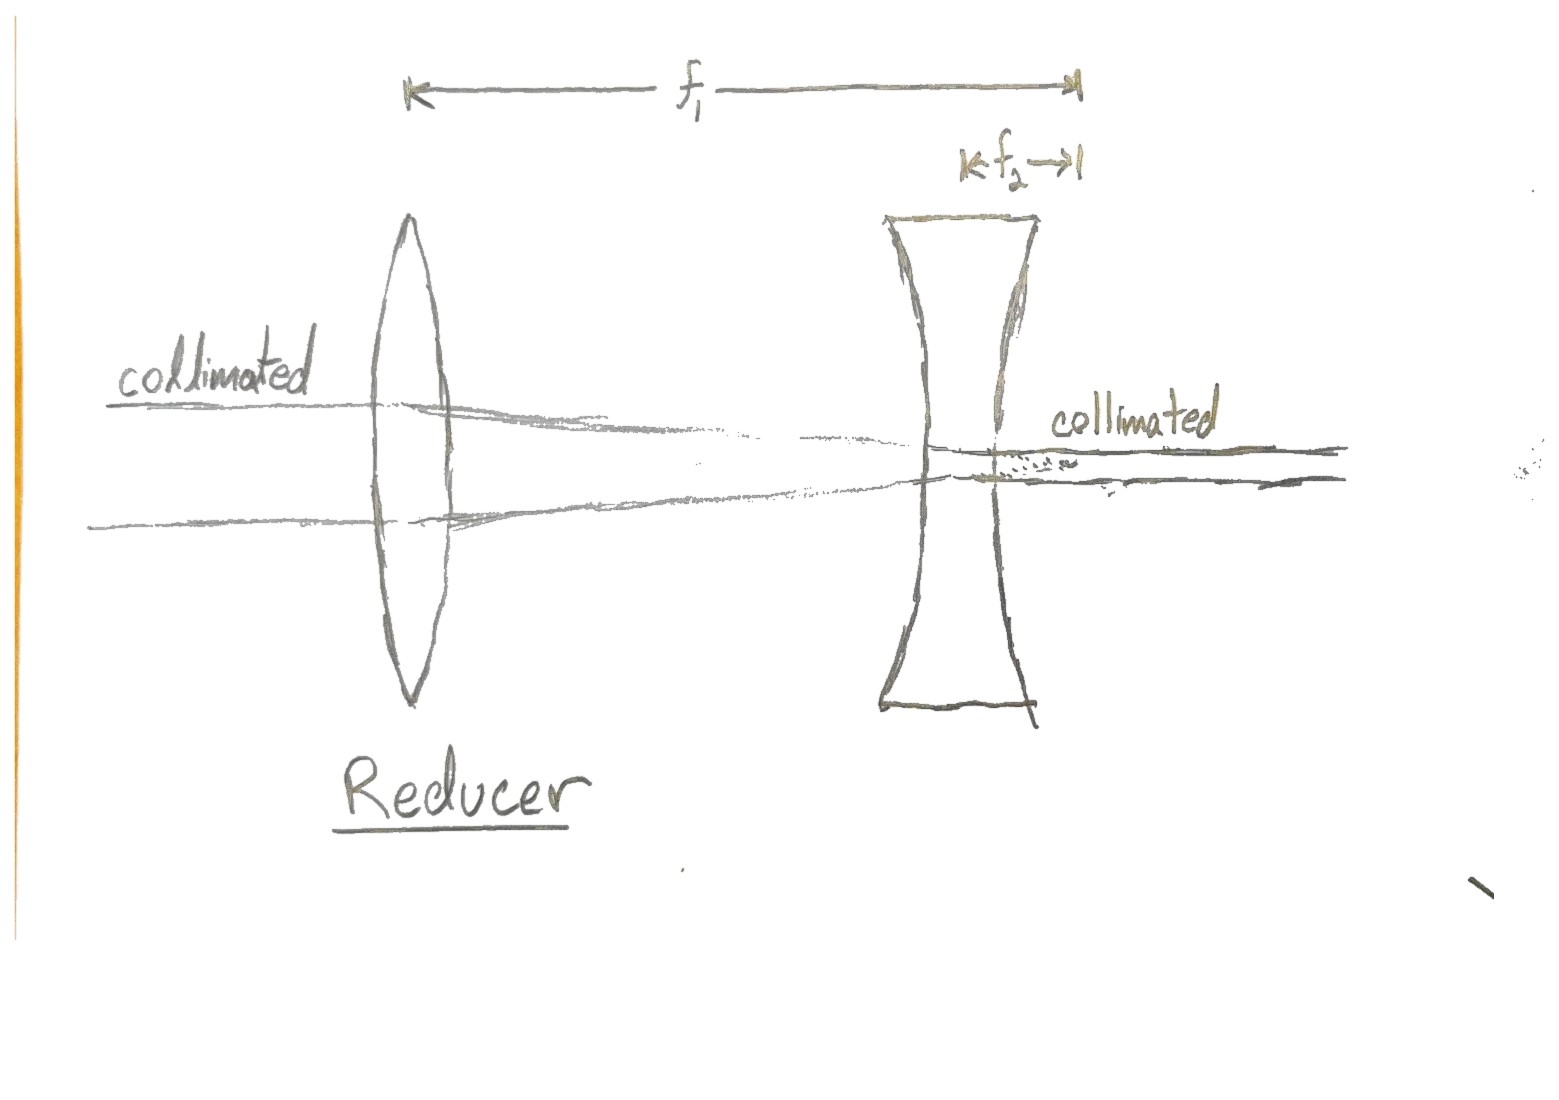 f1
f2
collimated
collimated
Reducer